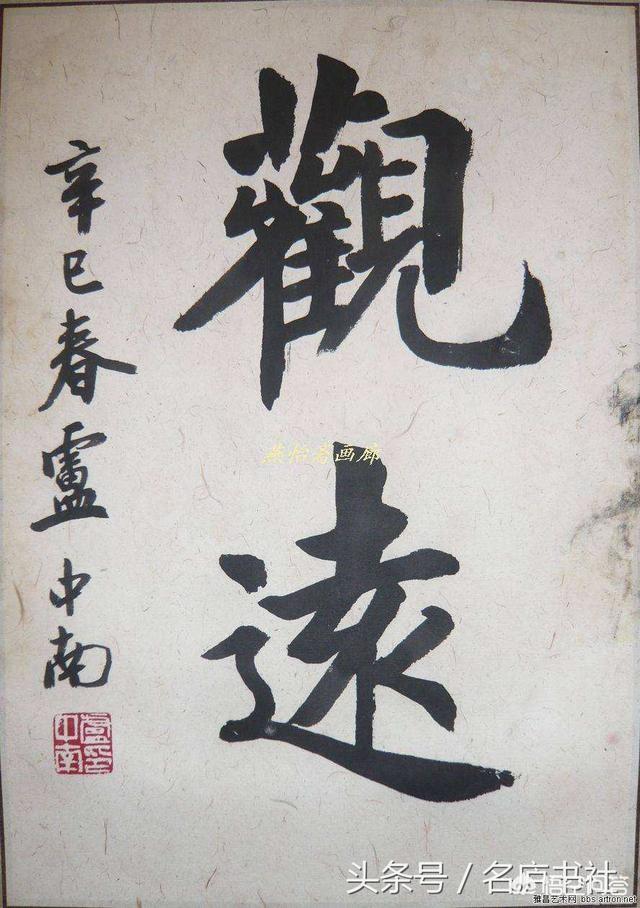 觀遠
辛巳春盧中南
盧中南印
燕怡君画廊
头条号／名卢书社
悟空问答
雅昌艺术网 bbs.artron.net